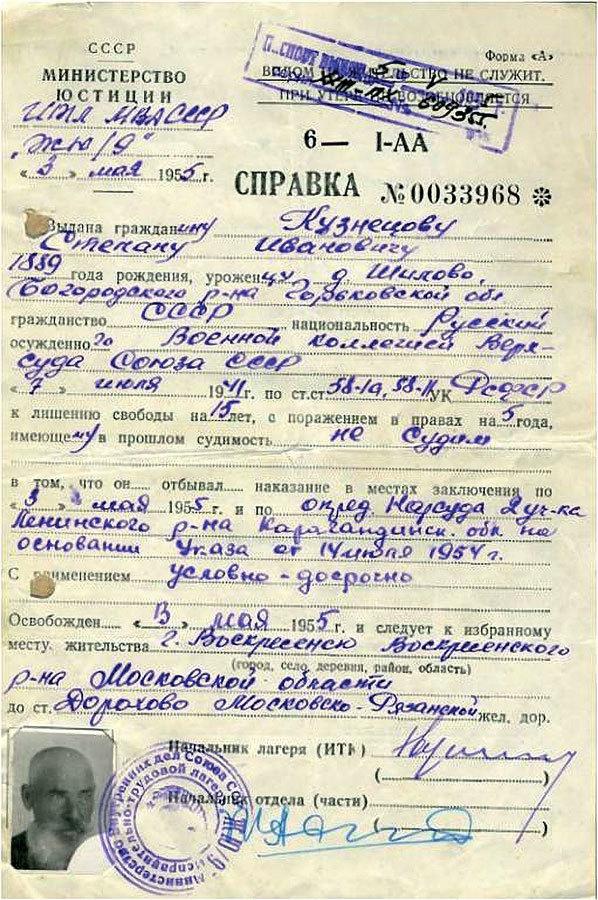 СССР
МИНИСТЕРСТВО
ЮСТИЦИИ
ИТЛ МВД СССР
"ЖЮ/9"
"3" мая 1955 г.
Форма «А»
ВИДОМ НА ЖИТЕЛЬСТВО НЕ СЛУЖИТ.
ПРИ УТЕРЕ НЕ ВОЗОБНОВЛЯЕТСЯ
6— I-АА
СПРАВКА №0033968 *
Выдана гражданину Кузнецову
Степану Ивановичу
1889 года рождения, уроженцу д Шилово,
Богородского р-на Горьковской обл
гражданство СССР национальность Русский
осужденного Военной коллегией Верх-
суда Союза СССР
«7» июля 1941 г. по ст.ст 58-1а, 58-11 УК РСФСР
к лишению свободы на 15 лет, с поражением в правах на 5 года,
имеющему в прошлом судимость не судим
в том, что он отбывал наказание в местах заключения по
«3» мая 1955 г. и по опред Нарсуда 2 уч-ка
Ленинского р-на Карагандинск. обл на
основании Указа от 14 июля 1954 г.
С применением условно-досрочно
Освобожден «13» мая 1955 г. и следует к избранному
месту жительства г. Воскресенск Воскресенского
(город, село, деревня, район, область)
р-на Московской области
до ст. Дорохово Московско-Рязанской жел. дор.
Начальник лагеря (ИТК)
Начальник отдела (части)